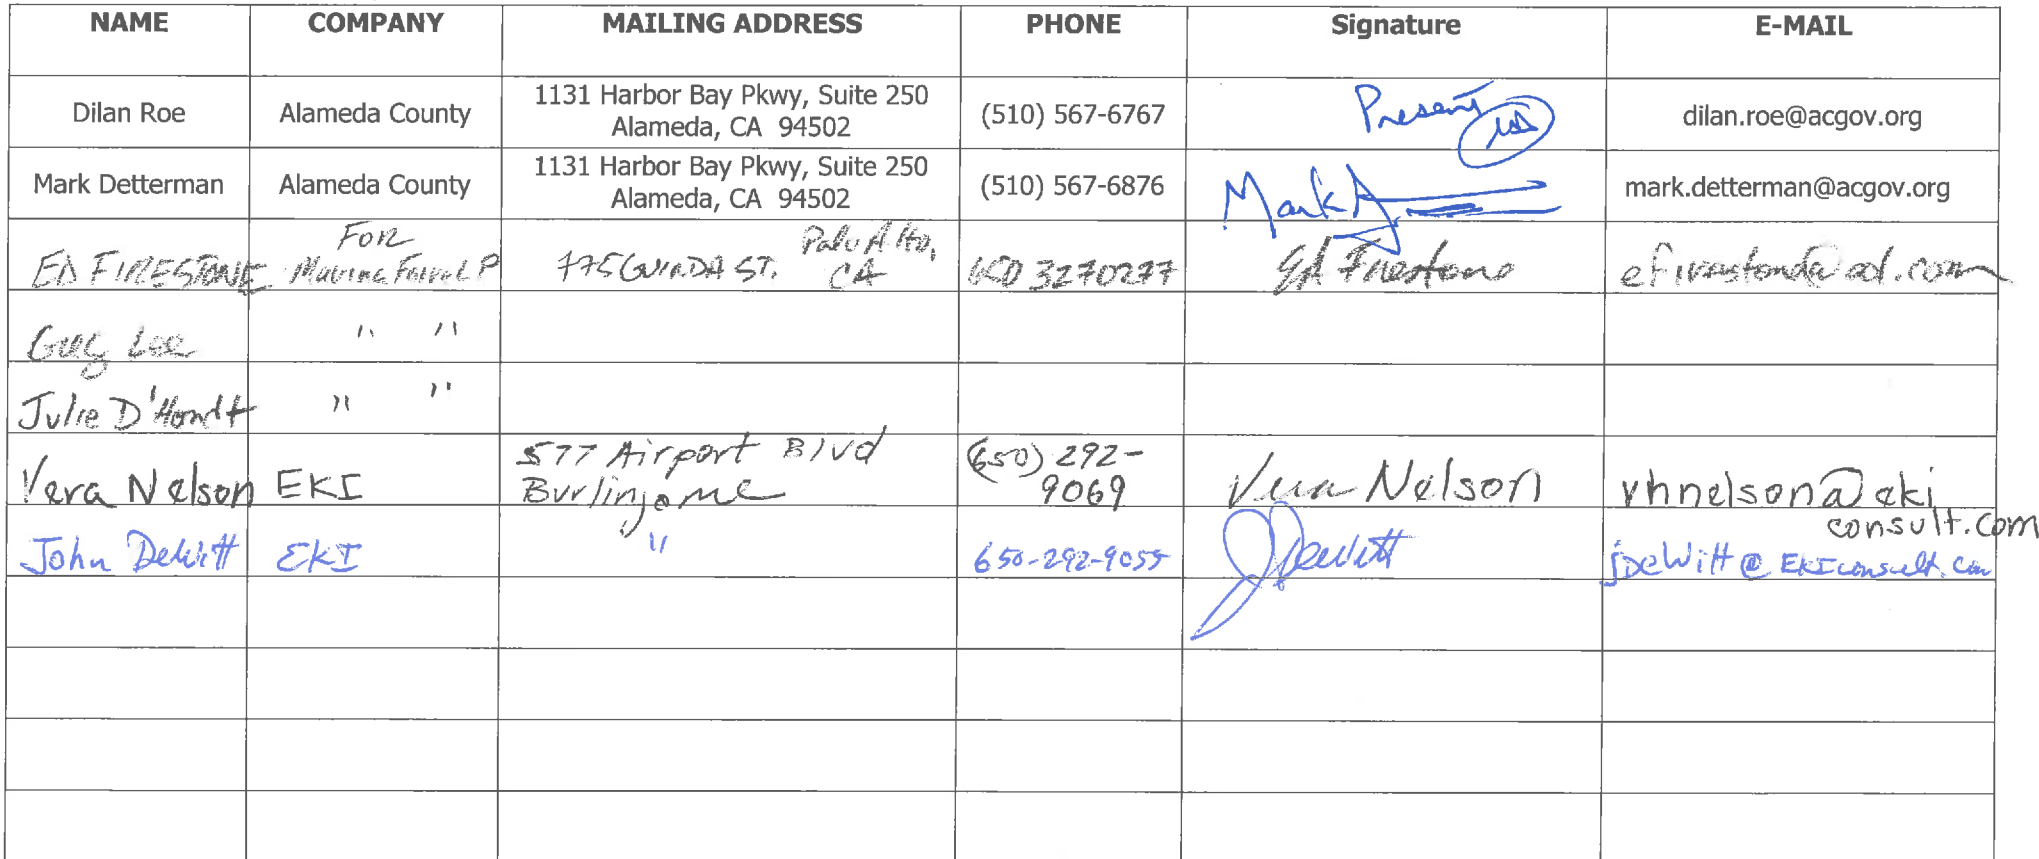 NAME COMPANY MAILING ADDRESS PHONE Signature E-MAIL
Dilan Roe Alameda County 1131 Harbor Bay Pkwy, Suite 250 Alameda, CA 94502 (510) 567-6767 Present dilan.roe@acgov.org
Mark Detterman Alameda County 1131 Harbor Bay Pkwy, Suite 250 Alameda, CA 94502 (510) 567-6876 Mark D. mark.detterman@acgov.org
ED FIRESTONE FOR 775 GUINDA ST. Palo Alto, CA 650 3270277 Ed Firestone efirestone@aol.com
Greg Lee " "
Julie D'Hondt " "
Vera Nelson EKI 577 Airport Blvd Burlingame (650) 292-9069 Vera Nelson vhnelson@eki
consult.com
John DeWitt EKI " 650-292-9055 JDewitt jDeWitt@EKIconsult.com